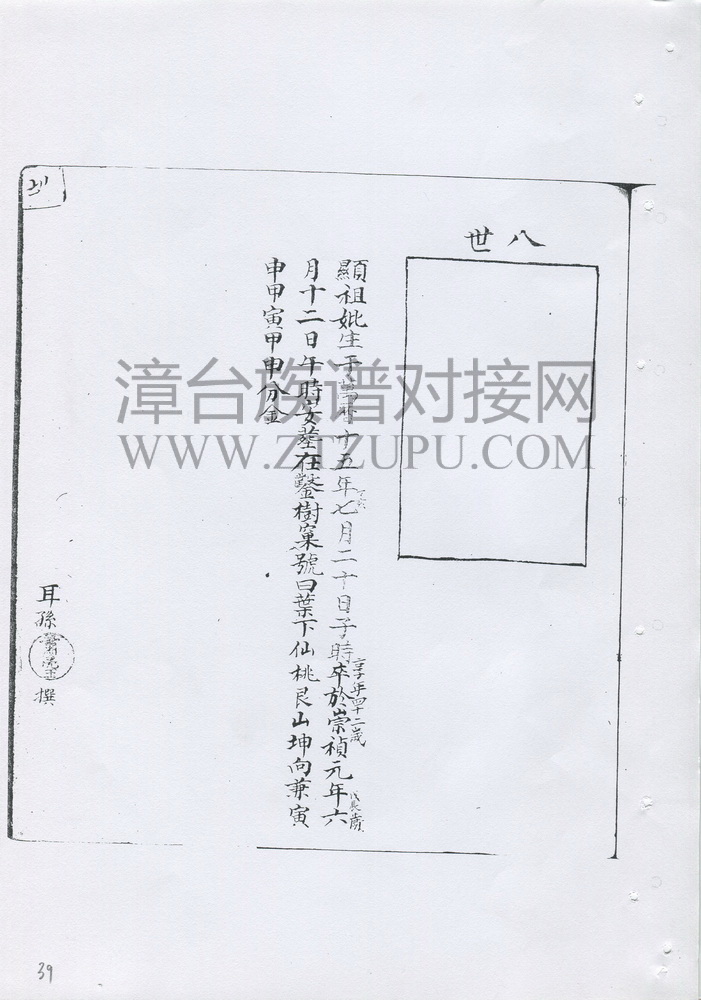 八世
顯祖妣生于萬曆十五年七月二十日子時卒於崇禎元年六
享年四十二歲
戊辰歲
月十二日午時安塟在鑿樹窠號曰葉下仙桃艮山坤向兼寅
申甲寅甲申分金
耳孫
撰
漳台族谱对接网
WWW.ZTZUPU.COM
39